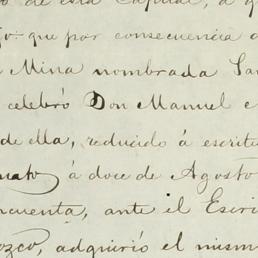 de esta Capital, á q
jo: que por consecuencia d
Mina nombrada San
celebró Don Manuel e
de ella, reducido á escritu
nato á doce de Agosto
ncuenta, ante el Escri
ozco, adquirió el mism